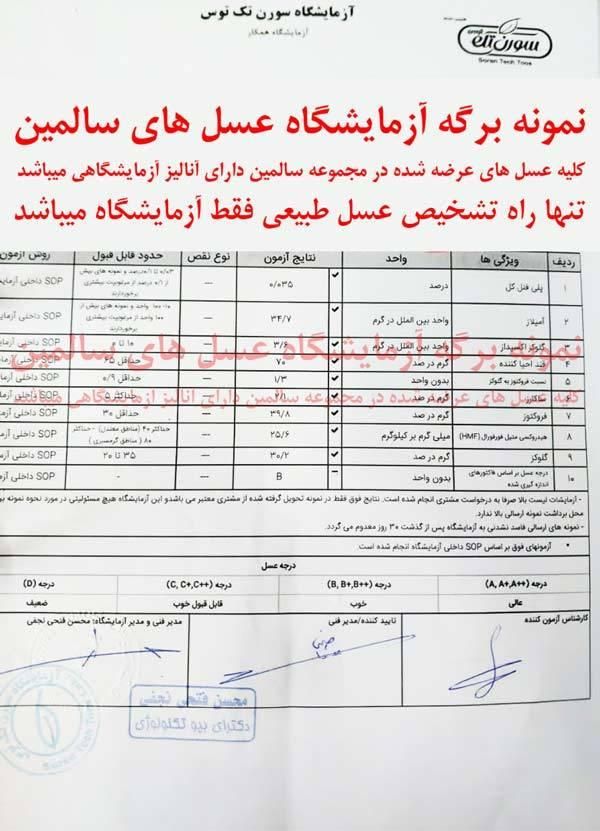 آزمایشگاه سورن تک توس
آزمایشگاه همکار
سورن تک
Soren Tech Toos
نمونه برگه آزمایشگاه عسل های سالمین
کلیه عسل های عرضه شده در مجموعه سالمین دارای آنالیز آزمایشگاهی میباشد
تنها راه تشخیص عسل طبیعی فقط آزمایشگاه میباشد
ردیف ویژگی ها واحد نتایج آزمون نوع نقص حدود قابل قبول روش آزمون
۱ پلی فنل کل درصد ۰/۰۳۵ --- SOP داخلی
۲ آمیلاز واحد بین الملل در گرم ۳۴/۷ --- SOP داخلی
۳ گلوکز اکسیداز واحد بین الملل در گرم ۳/۶ --- ۱۰ تا ۵ SOP داخلی
۴ قند احیا کننده گرم در صد ۷۰ --- حداقل ۶۵ SOP داخلی
۵ نسبت فروکتوز به گلوکز بدون واحد ۱/۳ --- حداقل ۰/۹ SOP داخلی
۶ ساکارز گرم در صد ۲/۱ --- حداکثر ۵ SOP داخلی
۷ فروکتوز گرم در صد ۳۹/۸ --- حداقل ۳۰ SOP داخلی
۸ هیدروکسی متیل فورفورال (HMF) میلی گرم بر کیلوگرم ۲۵/۶ --- حداکثر ۴۰ (مناطق معتدل) - حداکثر ۸۰ (مناطق گرمسیری) SOP داخلی
۹ گلوکز گرم در صد ۳۰/۲ --- ۳۵ تا ۲۰ SOP داخلی
۱۰ درجه عسل بر اساس فاکتورهای اندازه گیری شده بدون واحد B --- - SOP داخلی
نمونه برگه آزمایشگاه عسل های سالمین
کلیه عسل های عرضه شده در مجموعه سالمین دارای آنالیز آزمایشگاهی میباشد
- آزمایشات لیست بالا صرفا به درخواست مشتری انجام شده است. نتایج فوق فقط در نمونه تحویل گرفته شده از مشتری معتبر می باشدو این آزمایشگاه هیچ مسئولیتی در مورد نحوه نمونه
محل برداشت نمونه ارسالی بالا ندارد.
- نمونه های ارسالی فاسد نشدنی به آزمایشگاه پس از گذشت ۳۰ روز معدوم می گردد.
• آزمونهای فوق بر اساس SOP داخلی آزمایشگاه انجام شده است.
درجه عسل
درجه (A, A+,A++) درجه (B, B+,B++) درجه (C, C+,C++) درجه (D)
عالی خوب قابل قبول خوب ضعیف
کارشناس آزمون کننده تایید کننده/مدیر فنی مدیر فنی و مدیر آزمایشگاه: محسن فتحی نجفی
محسن فتحی نجفی
دکترای بیو تکنولوژی
Soren Tech